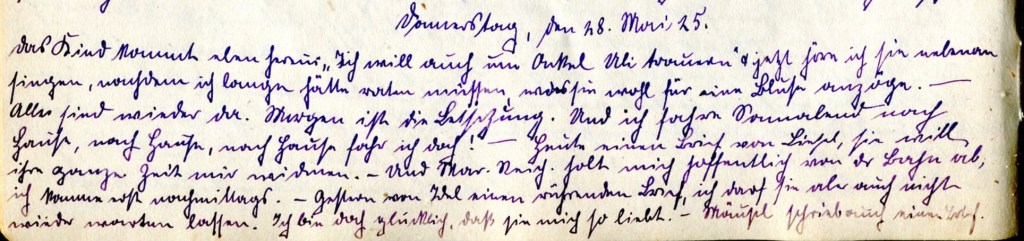 Donnerstag, den 28. Mai 25.
Das Kind kommt eben herein „Ich will auch um Onkel Uli trauern" & jetzt höre ich sie nebenan
singen, nachdem ich lange hätte raten müssen, was sie wohl für eine Bluse anzöge. —
Alle sind wieder da. Morgen ist die Beisetzung. Und ich fahre Sonnabend nach
Hause, nach Hause, nach Hause fahr ich doch! — Heute einen Brief von Liesel, sie will
ihre ganze Zeit mir widmen. — Und Mar. Reich. holt mich hoffentlich von der Bahn ab,
ich komme erst nachmittags. — Gestern von Idel einen rührenden Brief, ich darf sie aber auch nicht
wieder warten lassen. Ich bin doch glücklich, daß sie mich so liebt. — Mäusel schrieb auch einen Brief.